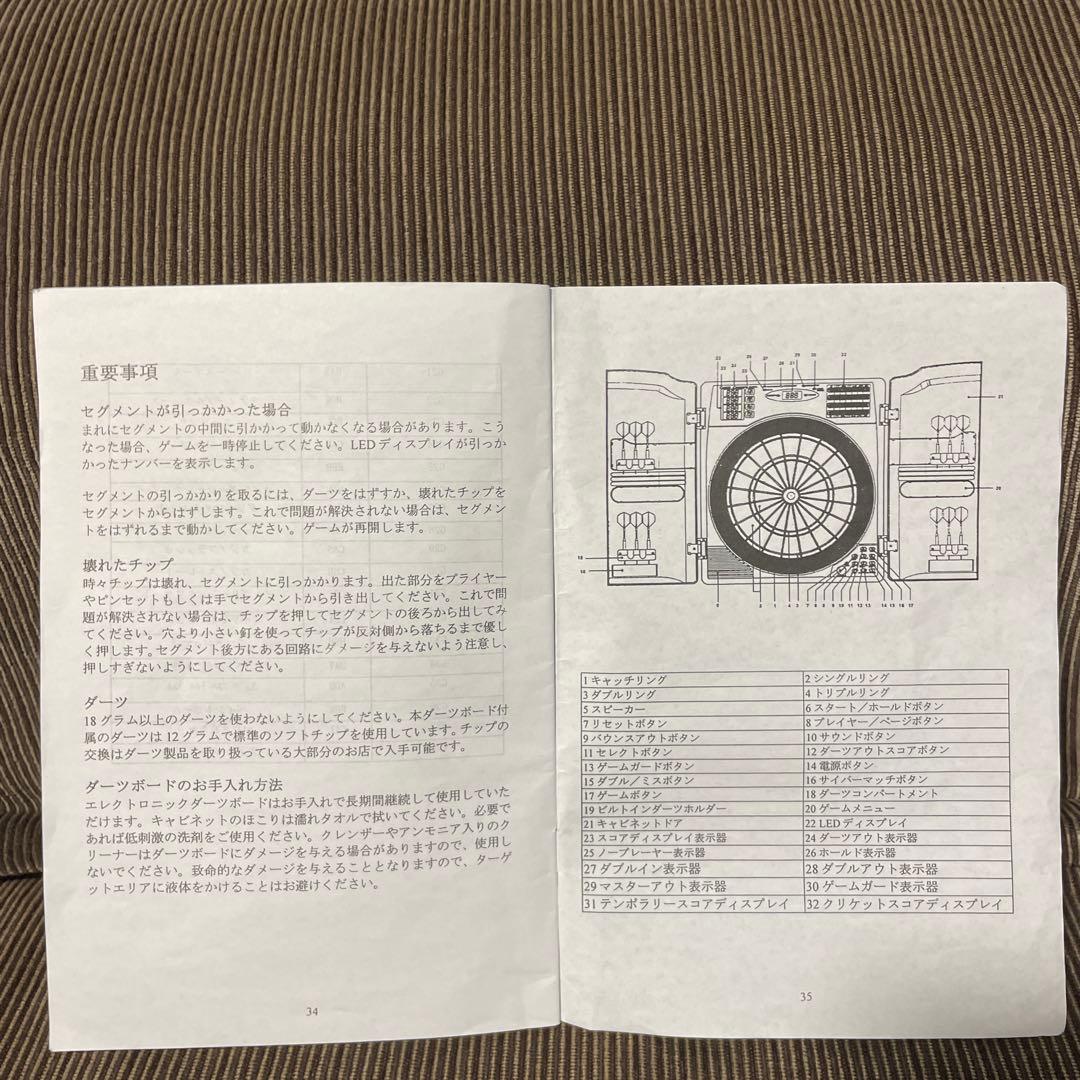 重要事項
セグメントが引っかかった場合
まれにセグメントの中間に引かかって動かなくなる場合があります。こう
なった場合、ゲームを一時停止してください。LEDディスプレイが引っか
かったナンバーを表示します。
セグメントの引っかかりを取るには、ダーツをはずすか、壊れたチップを
セグメントからはずします。これで問題が解決されない場合は、セグメン
トをはずれるまで動かしてください。ゲームが再開します。
壊れたチップ
時々チップは壊れ、セグメントに引っかかります。出た部分をプライヤー
やピンセットもしくは手でセグメントから引き出してください。これで問
題が解決されない場合は、チップを押してセグメントの後ろから出してみ
てください。穴より小さい釘を使ってチップが反対側から落ちるまで優し
く押します。セグメント後方にある回路にダメージを与えないよう注意し、
押しすぎないようにしてください。
ダーツ
18グラム以上のダーツを使わないようにしてください。本ダーツボード付
属のダーツは12グラムで標準のソフトチップを使用しています。チップの
交換はダーツ製品を取り扱っている大部分のお店で入手可能です。
ダーツボードのお手入れ方法
エレクトロニックダーツボードはお手入れで長期間継続して使用していた
だけます。キャビネットのほこりは濡れタオルで拭いてください。必要で
あれば低刺激の洗剤をご使用ください。クレンザーやアンモニア入りのク
リーナーはダーツボードにダメージを与える場合がありますので、使用し
ないでください。致命的なダメージを与えることとなりますので、ターゲ
ットエリアに液体をかけることはお避けください。
34
1キャッチリング 2シングルリング
3ダブルリング 4トリプルリング
5スピーカー 6スタート／ホールドボタン
7リセットボタン 8プレイヤー／ページボタン
9バウンスアウトボタン 10サウンドボタン
11セレクトボタン 12ダーツアウトスコアボタン
13ゲームガードボタン 14電源ボタン
15ダブル／ミスボタン 16サイバーマッチボタン
17ゲームボタン 18ダーツコンパートメント
19ビルトインダーツホルダー 20ゲームメニュー
21キャビネットドア 22LEDディスプレイ
23スコアディスプレイ表示器 24ダーツアウト表示器
25ノープレーヤー表示器 26ホールド表示器
27ダブルイン表示器 28ダブルアウト表示器
29マスターアウト表示器 30ゲームガード表示器
31テンポラリースコアディスプレイ 32クリケットスコアディスプレイ
35